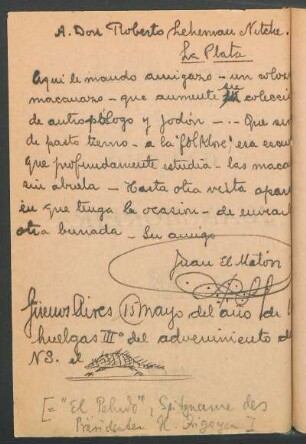 A. Don Roberto Leheman Nitche.
La Plata
Aqui le mando amigazo - un colos
macanazo - que aumente su colecci
de antropólogo y jodón - .. Que sir
de pasto tierno - a la "folklore" era
que profundamente estudia - las maca
sin abuela - Hasta otra vista apar
en que tenga la ocasion - de enviar
otra bunada - Su amigo
Juan El Matón
Guenos Aires (15) mayo del año de
huelgas III° del advenimiento del
N3. el
[= "El Peludo", Spitzname des
Präsidenten H. Irigoyen]